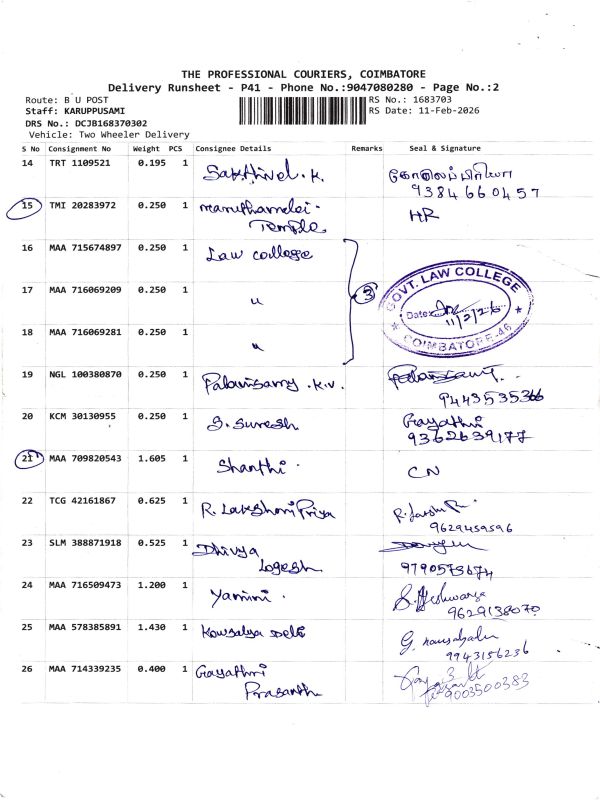 THE PROFESSIONAL COURIERS, COIMBATORE
Delivery Runsheet - P41 - Phone No.:9047080280 - Page No.:2
Route: B U POST
RS No.: 1683703
Staff: KARUPPUSAMI
RS Date: 11-Feb-2026
DRS No.: DCJB168370302
Vehicle: Two Wheeler Delivery
S No Consignment No Weight PCS Consignee Details Remarks Seal & Signature
14 TRT 1109521 0.195 1 Sakthivel . K.
9384660457
15 TMI 20283972 0.250 1 Maruthamalai HR
Temple
16 MAA 715674897 0.250 1 Law college
17 MAA 716069209 0.250 1 "
3
18 MAA 716069281 0.250 1 "
GOVT. LAW COLLEGE
Date:
11/2/26
COIMBATORE-46
19 NGL 100380870 0.250 1 Palanisamy . K.V. Palanisamy
9443535366
20 KCM 30130955 0.250 1 S. Suresh Gayathri
9362639177
21 MAA 709820543 1.605 1 Shanthi . CN
22 TCG 42161867 0.625 1 R. Lakshmi Priya
9629459596
23 SLM 388871918 0.525 1 Dhivya
Logesh 9790573674
24 MAA 716509473 1.200 1 Yamini .
9629138070
25 MAA 578385891 1.430 1 Kowsalya Devi G.
9943156236
26 MAA 714339235 0.400 1 Gayathri
Prasanth 9003500383